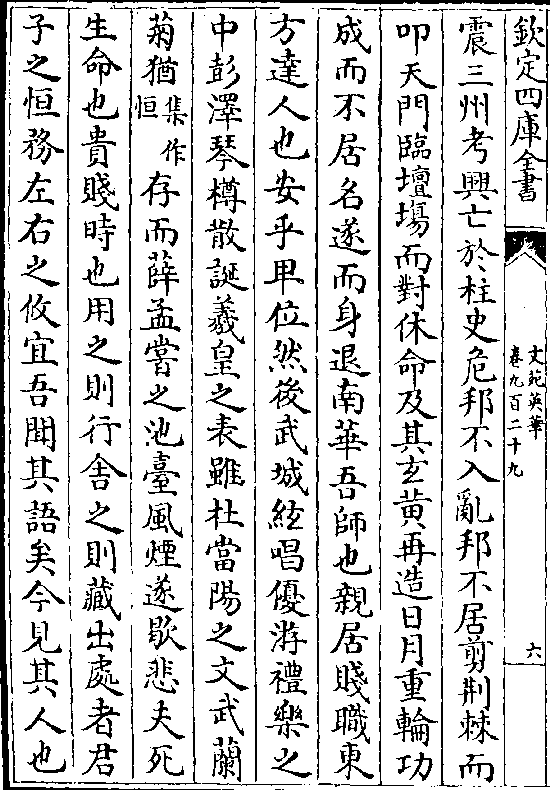 欽定四庫全書
文苑英華
卷九百二十九
六
震三州考興亡於柱史危邦不入亂邦不居剪荆棘而
叩天門臨壇場而對休命及其玄黄再造日月重輪功
成而不居名遂而身退南華吾師也親居賤職東
方達人也安乎甲位然後武城絃唱優游禮樂之
中彭澤琴樽散誕羲皇之表雖杜當陽之文武蘭
菊猶集作恒存而薛孟嘗之池臺風煙遂歇悲夫死
生命也貴賤時也用之則行舍之則藏出處者君
子之恒務左右之攸宜吾聞其語矣今見其人也